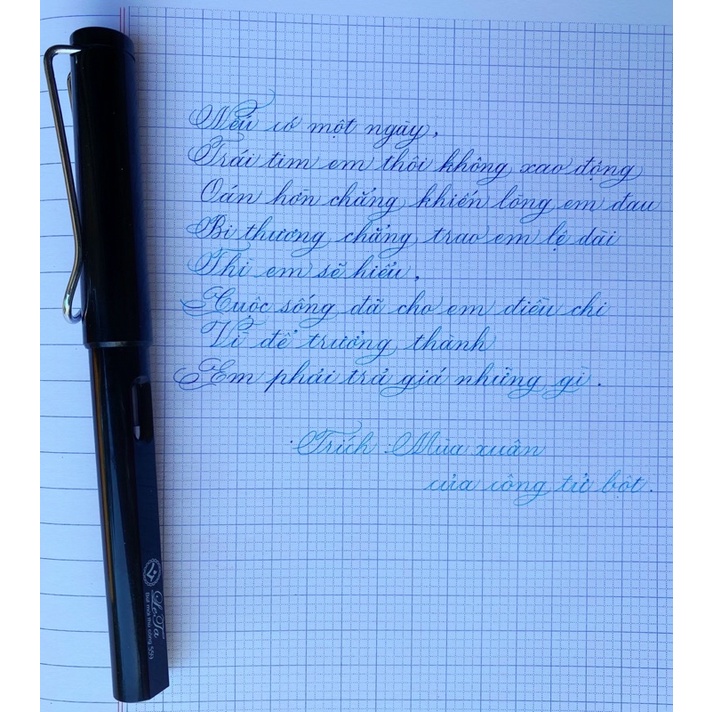 Nếu có một ngày,
Trái tim em thôi không xao động
Oán hờn chẳng khiến lòng em đau
Bi thương chẳng trao em lệ dài
Thì em sẽ hiểu,
Cuộc sống đã cho em điều chi
Vì để trưởng thành
Em phải trả giá những gì.
Trích Mùa xuân
của công tử bột.
LeTa
Bút mài thủ công SG1